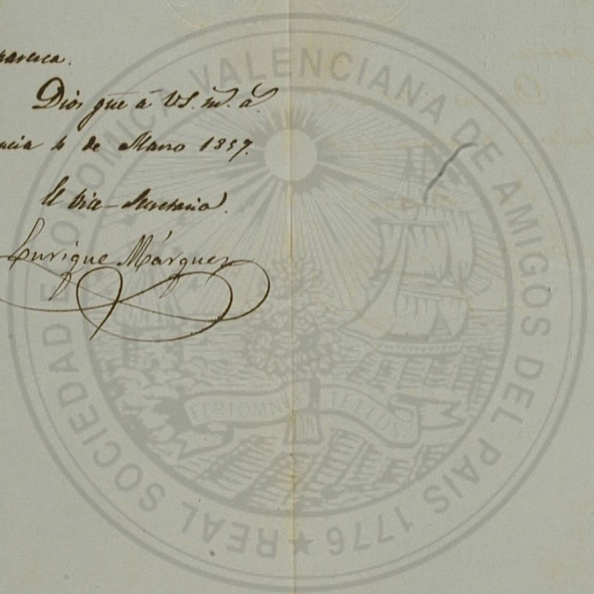 parezca.
Dios gue á VS. m. a.
ncia 4 de Marzo 1857.
El Vice-Secretario.
Enrique Márquez
REAL SOCIEDAD ECONOMICA VALENCIANA DE AMIGOS DEL PAIS 1776
FERT OMNIA TELLUS